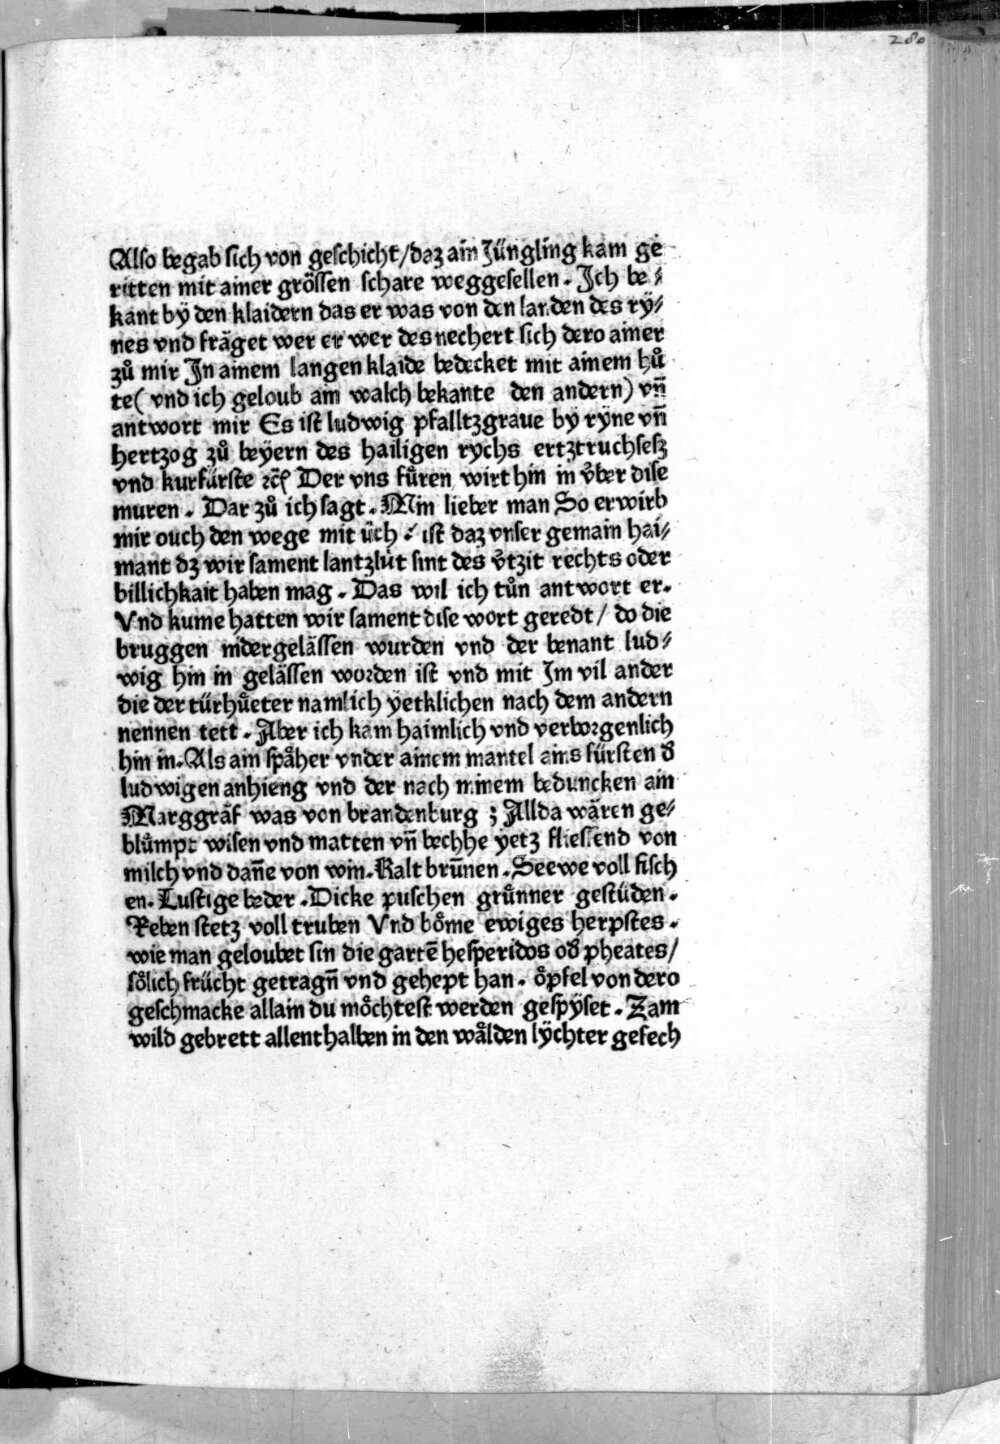 280
Also begab sich von geschicht/daz ain Jüngling kam ge
ritten mit ainer grössen schare weggesellen. Ich be⸗
kant bÿ den klaidern das er was von den landen des rÿ⸗
nes vnd fräget wer er wer des nechert sich dero ainer
zů mir In ainem langen klaide bedecket mit ainem hů
te( vnd ich geloub ain walch bekante den andern) vn̄
antwort mir Es ist ludwig pfalltzgraue bÿ rÿne vn̄
hertzog zů beÿern des hailigen rychs ertztruchsesz
vnd kurfürste ꝛcͨ Der vns fůren wirt hin in v̊ber dise
muren. Dar zů ich sagt. Min lieber man So erwirb
mir ouch den wege mit üch : ist daz vnser gemain hai⸗
mant dz wir sament lantzlüt sint des v̊tzit rechts oder
billichkait haben mag. Das wil ich tůn antwort er.
Vnd kume hatten wir sament dise wort geredt/ do die
bruggen nidergelässen wurden vnd der benant lud⸗
wig hin in gelässen worden ist vnd mit Im vil ander
die der türhůeter namlich ÿetklichen nach dem andern
nennen tett. Aber ich kam haimlich vnd verborgenlich
hin in. Als ain spåher vnder ainem mantel ains fürsten d̓
ludwigen anhieng vnd der nach minem beduncken ain
Marggräf was von brandenburg ; Allda wären ge⸗
blůmpt wisen vnd matten vn̄ bechhe ÿetz fliessend von
milch vnd dan̄e von win. Kalt brūnen. Seewe voll fisch
en. Lustige beder. Dicke puschen grůnner gestüden.
Reben stetz voll truben Vnd bo̊me ewiges herpstes.
wie man geloubet sin die gartē hesperidos od̓ pheates/
so̊lich frücht getragn̄ vnd gehept han. o̊pfel von dero
geschmacke allain du mo̊chtest werden gespÿset. Zam
wild gebrett allenthalben in den wålden lÿchter gefech